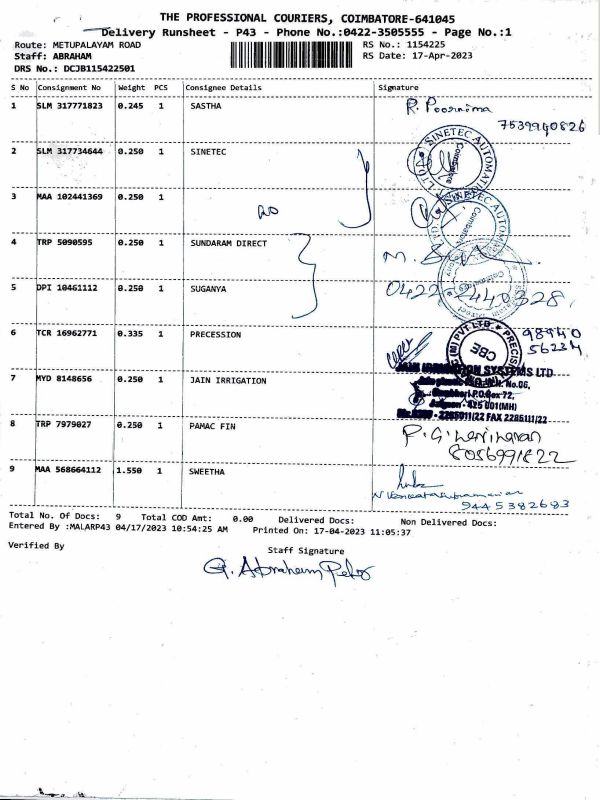 THE PROFESSIONAL COURIERS, COIMBATORE-641045
Delivery Runsheet - P43 - Phone No.:0422-3505555 - Page No.:1
Route: METUPALAYAM ROAD RS No.: 1154225
Staff: ABRAHAM RS Date: 17-Apr-2023
DRS No.: DCJB115422501
S No Consignment No Weight PCS Consignee Details Signature
1 SLM 317771823 0.245 1 SASTHA R. Poornima
7539990826
2 SLM 317734644 0.250 1 SINETEC SINETEC AUTOMATION Coimbatore
3 MAA 102441369 0.250 1 SINETEC AUTOMATION Coimbatore
4 TRP 5090595 0.250 1 SUNDARAM DIRECT
5 DPI 10461112 0.250 1 SUGANYA 0422-2440328
6 TCR 16962771 0.335 1 PRECESSION CBE 98940
56234
7 MYD 8148656 0.250 1 JAIN IRRIGATION IRRIGATION SYSTEMS LTD
No.06,
P.O.Box 72,
425 001(MH)
FAX 2285111/22
8 TRP 7979027 0.250 1 PAMAC FIN
8056991822
9 MAA 568664112 1.550 1 SWEETHA
9445382683
Total No. Of Docs: 9 Total COD Amt: 0.00 Delivered Docs: Non Delivered Docs:
Entered By :MALARP43 04/17/2023 10:54:25 AM Printed On: 17-04-2023 11:05:37
Verified By Staff Signature